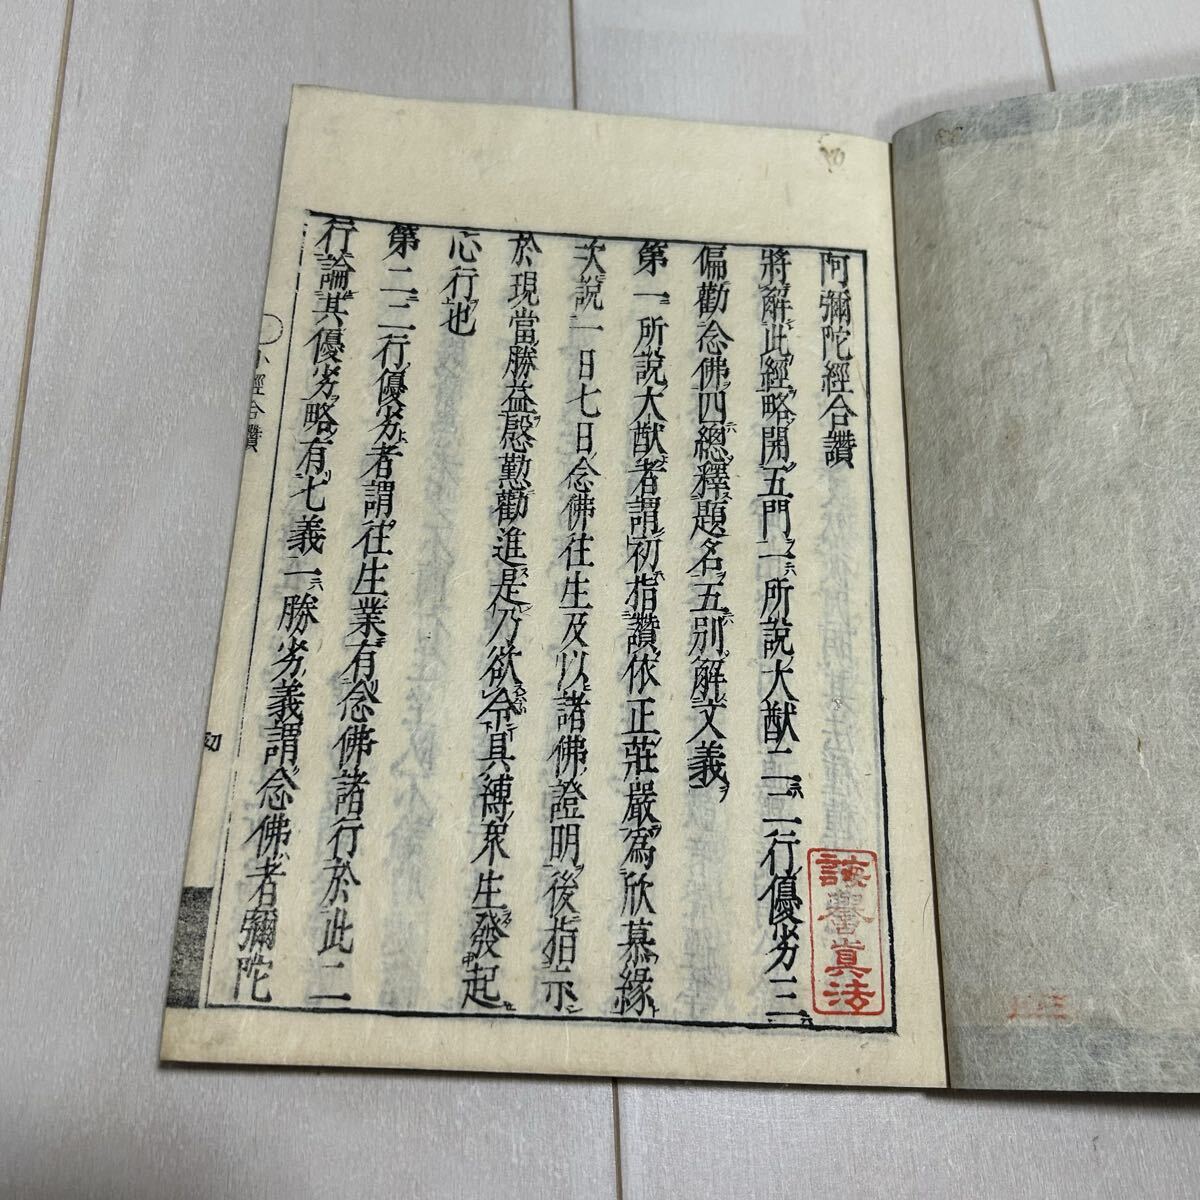 阿彌陀經合讚
將解此經略開五門一所說大猷二二行優劣三
偏勸念佛四總釋題名五別解文義
第一所說大猷者謂初指讚依正莊嚴爲欣慕緣
次說一日七日念佛往生及以諸佛證明後指示
於現當勝益慇懃勸進是乃欲令具縛衆生發起
心行也
第二二行優劣者謂往生業有念佛諸行於此二
行論其優劣略有七義一勝劣義謂念佛者彌陀
小經合讚
初
真法